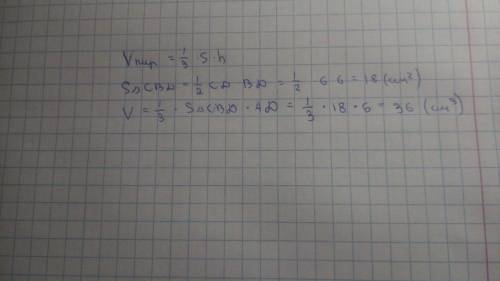 Vпир = 1/3 · S · h
S△CBD = 1/2 CD · BD = 1/2 · 6 · 6 = 18 (см²)
V = 1/3 · S△CBD · AD = 1/3 · 18 · 6 = 36 (см³)